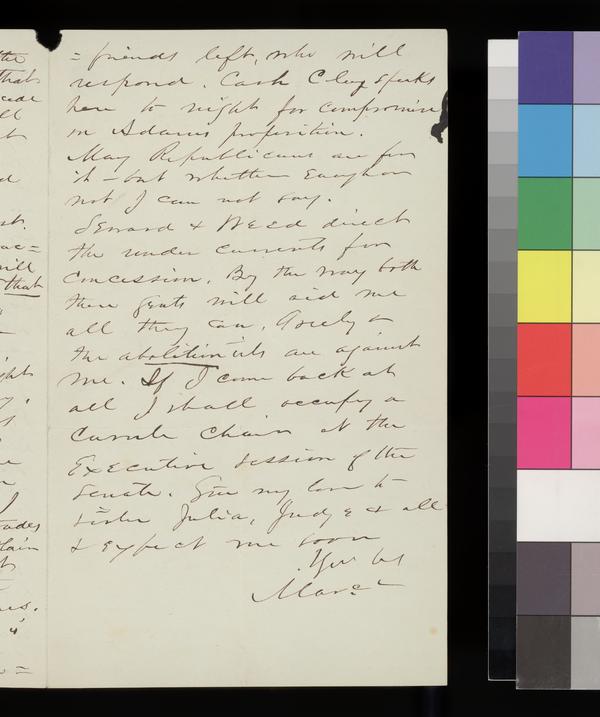 = friends left, who will
respond. Cash Clay speaks
here to night for compromise
on Adams proposition.
Many Republicans are for
it - but whether Enough or
not I can not say.
Seward & Weed direct
the under currents for
concession. By the way both
these gents will aid me
all they can. Greely &
the abolitionists are against
me. If I come back at
all I shall occupy a
Curule Chair at the
Executive Session of the
Senate. Give my love to
sister Julia, Judge & all
& expect me soon
Marc
the
that
will
that
I